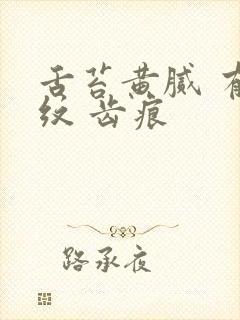 舌苔黄腻 有
纹 齿痕
路承夜